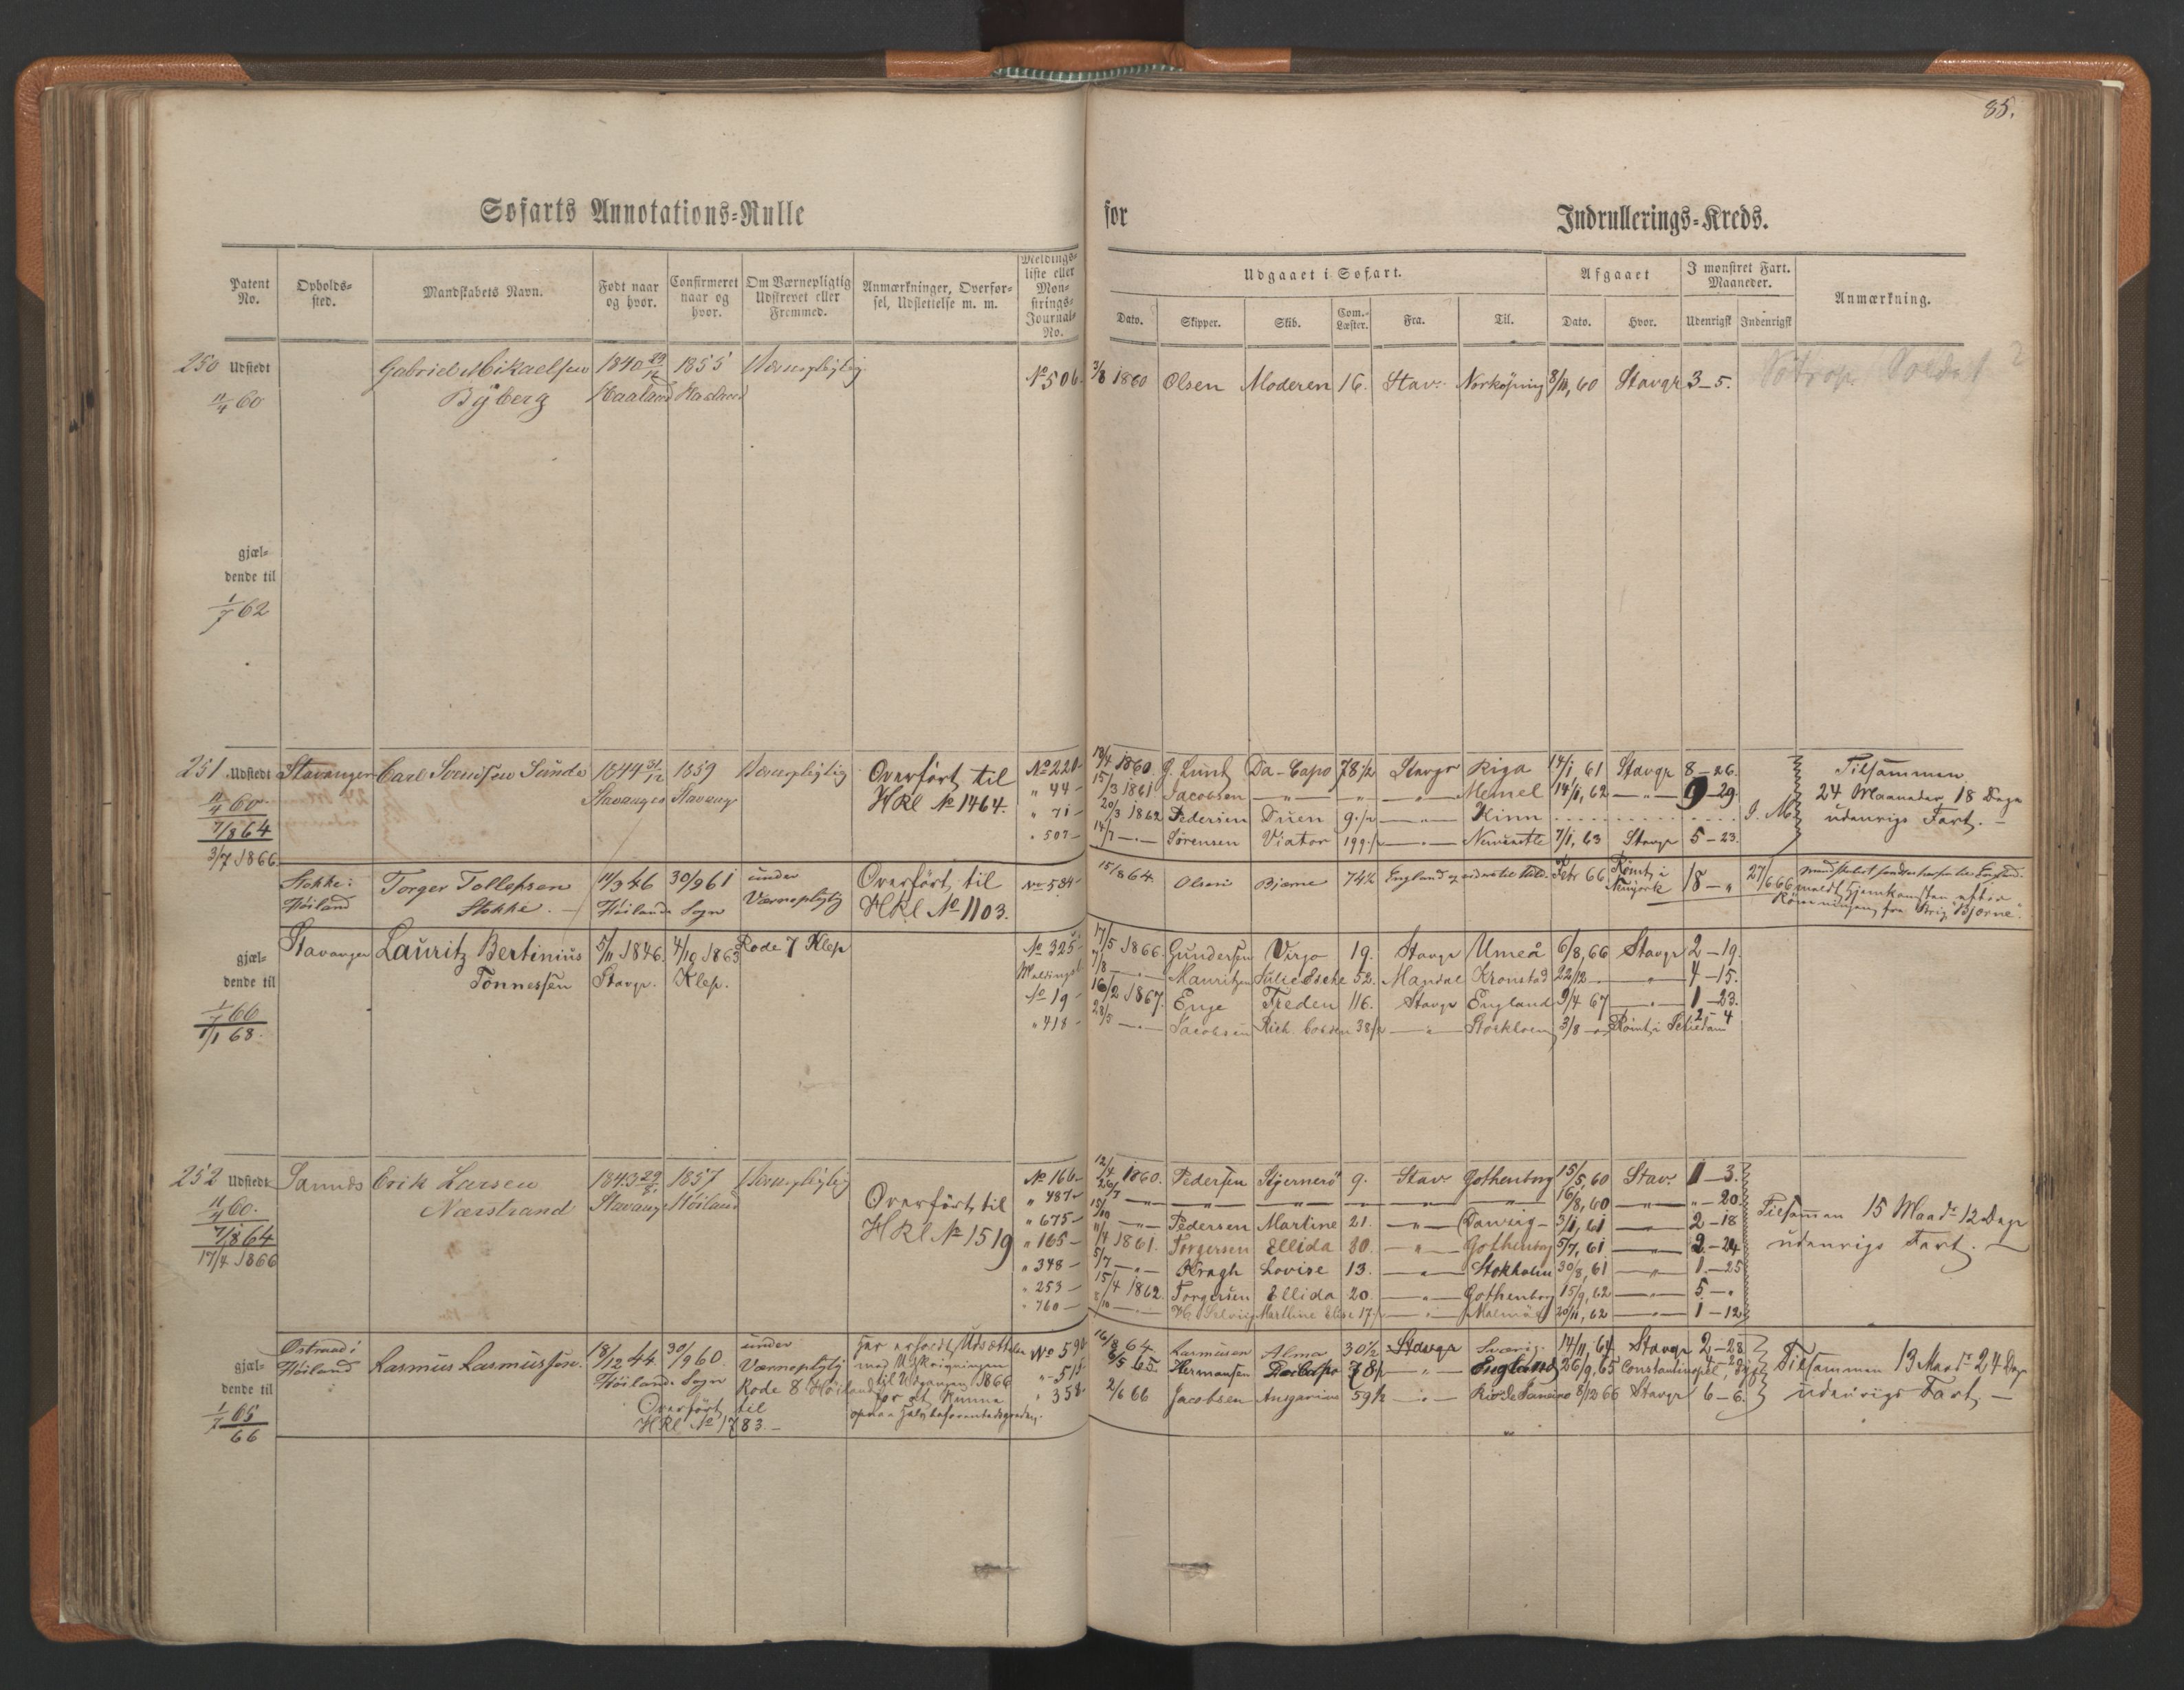 85.
Søfarts Annotations-Rulle for Indrullerings-Kreds.
Patent No. Opholds-sted. Mandskabets Navn. Født naar og hvor. Confirmeret naar og hvor. Om Værnepligtig Udskrevet eller Fremmed. Anmærkninger, Overførsel, Udslettelse m. m. Meldings-liste eller Mønstrings-Journal-No.
Udgaaet i Søfart. Afgaaet I mønstret Fart. Maaneder. Anmærkning.
Dato. Skipper. Skib. Com.-Læster. Fra. Til. Dato. Hvor. Udenrigsk Indenrigsk
250 Udstedt Gabriel Mikaelsen 1840 1855 Værnepligtig No 506. 3/8 1860 Olsen Moderen 16. Stav. Norköping 8/11, 60 Stavgr 3-5.
11/4 60 Byberg Haaland Haaland
gjæl-
dende til
1/7 62
251 Udstedt Stavanger Carl Svendsen Sunde 1844 31/12 1859 Værnepligtig Overført til No 220 1860. G. Lund Da-Capo 78 1/2 Stavgr Riga 14/1, 61 Stavgr 8-26. Tilsammen
11/4 60 Stavanger Stavang HRl No 1464. " 44 15/3 1861 Jacobsen " " " Memel 14/11, 62 " 9-29. 24 Maaneder 18 Dage
7/8 64 " 71 20/3 1862 Pedersen Duen 9 1/2 " Kinn udenrigs Fart.
3/7 1866 " 507 14/7 " Sørensen Viator 199 1/2 " Newcastle 7/1, 63 Stavgr 5-23.
Stokke: Torger Tollefsen 11/3 46 30/9 61 under Overført til No 584 15/8 64. Olsen Bjørne 74 1/2 England Febr 66 Rømt i 18-" 27/6 66
Høiland Stokke. Høilands Sogn Værnepligtig HRl No 1103. Newyork
Rømningen fra Brig "Bjørne".
gjæl- Stavanger Lauritz Bertinius 5/11 1846. 4/10 1863 Rode 7 Klep No 325 17/5 1866. Gundersen Virgo 19. Stavgr Umeå 6/8, 66 Stavgr 2-19.
dende til Tönnessen Stavgr. Klep. Meldingsl. 7/8 " Mauritzen Julie Eschc 52. Mandal Kronstad 22/12 " 4-15.
1/7 66 No 19 16/2 1867. Enge Freden 116. Stavgr England 9/4 67 " 1-23.
1/1 68. " 418 28/5 " Jacobsen Rich. Cobden 38 1/2 " Stockholm 3/8 " Rømt i 2-4
252 Udstedt Erik Larsen 1843 1857 Værnepligtig Overført til No 166 12/4 1860. Pedersen Stjernerö 9. Stav Gothenborg 15/5, 60 Stav. 1-3.
11/4 60. Nærstrand Stavang Høiland HRl No 1519 " 487 " " " " " " 16/8, 60 " "-20.
7/8 64 " 675 " Pedersen Martine 21. " Danzig 3/1, 61 " 2-18 Tilsammen 15 Maadr 12 Dage
17/4 1866 " 165 11/4 1861. Torgersen Ellida 20. " Gothenborg 5/7, 61 " 2-24 udenrigs Fart.
" 348 5/7 " Kragh Lovise 13. " Stokholm 30/8, 61 " 1-25
" 253 15/4 1862. Torgersen Ellida 20. " Gothenborg 15/9, 62 " 5-"
" 760 8/10 " Marthine Elise 17 1/2 " Malmö 20/11, 62 " 1-12
gjæl- Østraad i Rasmus Rasmussen. 18/12 44. 30/9 60. under Har erholdt Udsættelse No 590 16/8 64. Rasmussen Alma 30 1/2 Stavgr Sverig. 14/11, 64 Stavgr 2-28
dende til Høiland Høilands Sogn Værnepligtig med Udskrivningen " 515 8/5 65. Hermansen Da Capo 78 1/2 " England 26/9, 65 Constantinopel Tilsammen 13 Maadr 24 Dage
1/7 65 Overført til Rode 8 Høiland til Udgangen 1866 " 358 2/6 66 Jacobsen Ansgarius 59 1/2 " Rio de Janeiro 8/12 66 Stavgr 6-6. udenrigs Fart.
66 HRl No 1783. for at kunne